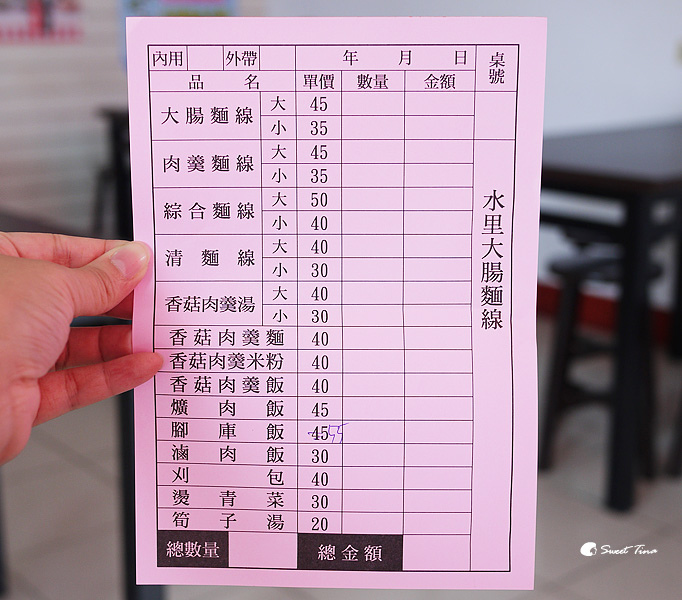 內用 外帶 年 月 日 桌號
品名 單價 數量 金額
大腸麵線 大 45
小 35
肉羹麵線 大 45
小 35
綜合麵線 大 50
小 40
清麵線 大 40
小 30
香菇肉羹湯 大 40
小 30
香菇肉羹麵 40
香菇肉羹米粉 40
香菇肉羹飯 40
爌肉飯 45
腳庫飯 45 55
滷肉飯 30
刈包 40
燙青菜 30
筍子湯 20
總數量 總金額
水里大腸麵線
Sweet Tina